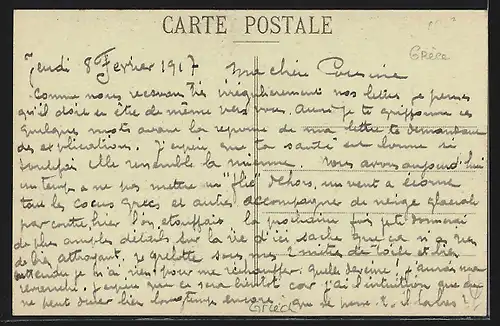 CARTE POSTALE
Grèce
Jeudi 8 Fevrier 1917 Ma chère Cousine
Comme nous recevons très irregulierement nos lettres je pense
qu'il doit en être de même vers vous. Aussi je te griffonne ces
quelques mots avant la reponse de ma lettre te demandant
des explications. J'espère que ta santé est bonne si
toutefois elle ressemble la mienne. Nous avons aujourd'hui
un temps a ne pas mettre un "flic" dehors, un vent a écorne
tous les cocus grecs et autres accompagner de neige glaciale
par contre hier l'on etouffait la prochaine fois je te donnerai
de plus amples détails sur la vie d'ici sache que ca n'a rien
de bien attrayant. Je grelotte sous mes 2 mètres de toile et bien
entendu je n'ai rien pour me réchauffer. Quelle deveine! J'aurais
revenir. J'espère que ce sera bientot car j'ai l'intuition que ça
ne peut durer bien longtemps encore, que se passe-t-il labas?
Grèce